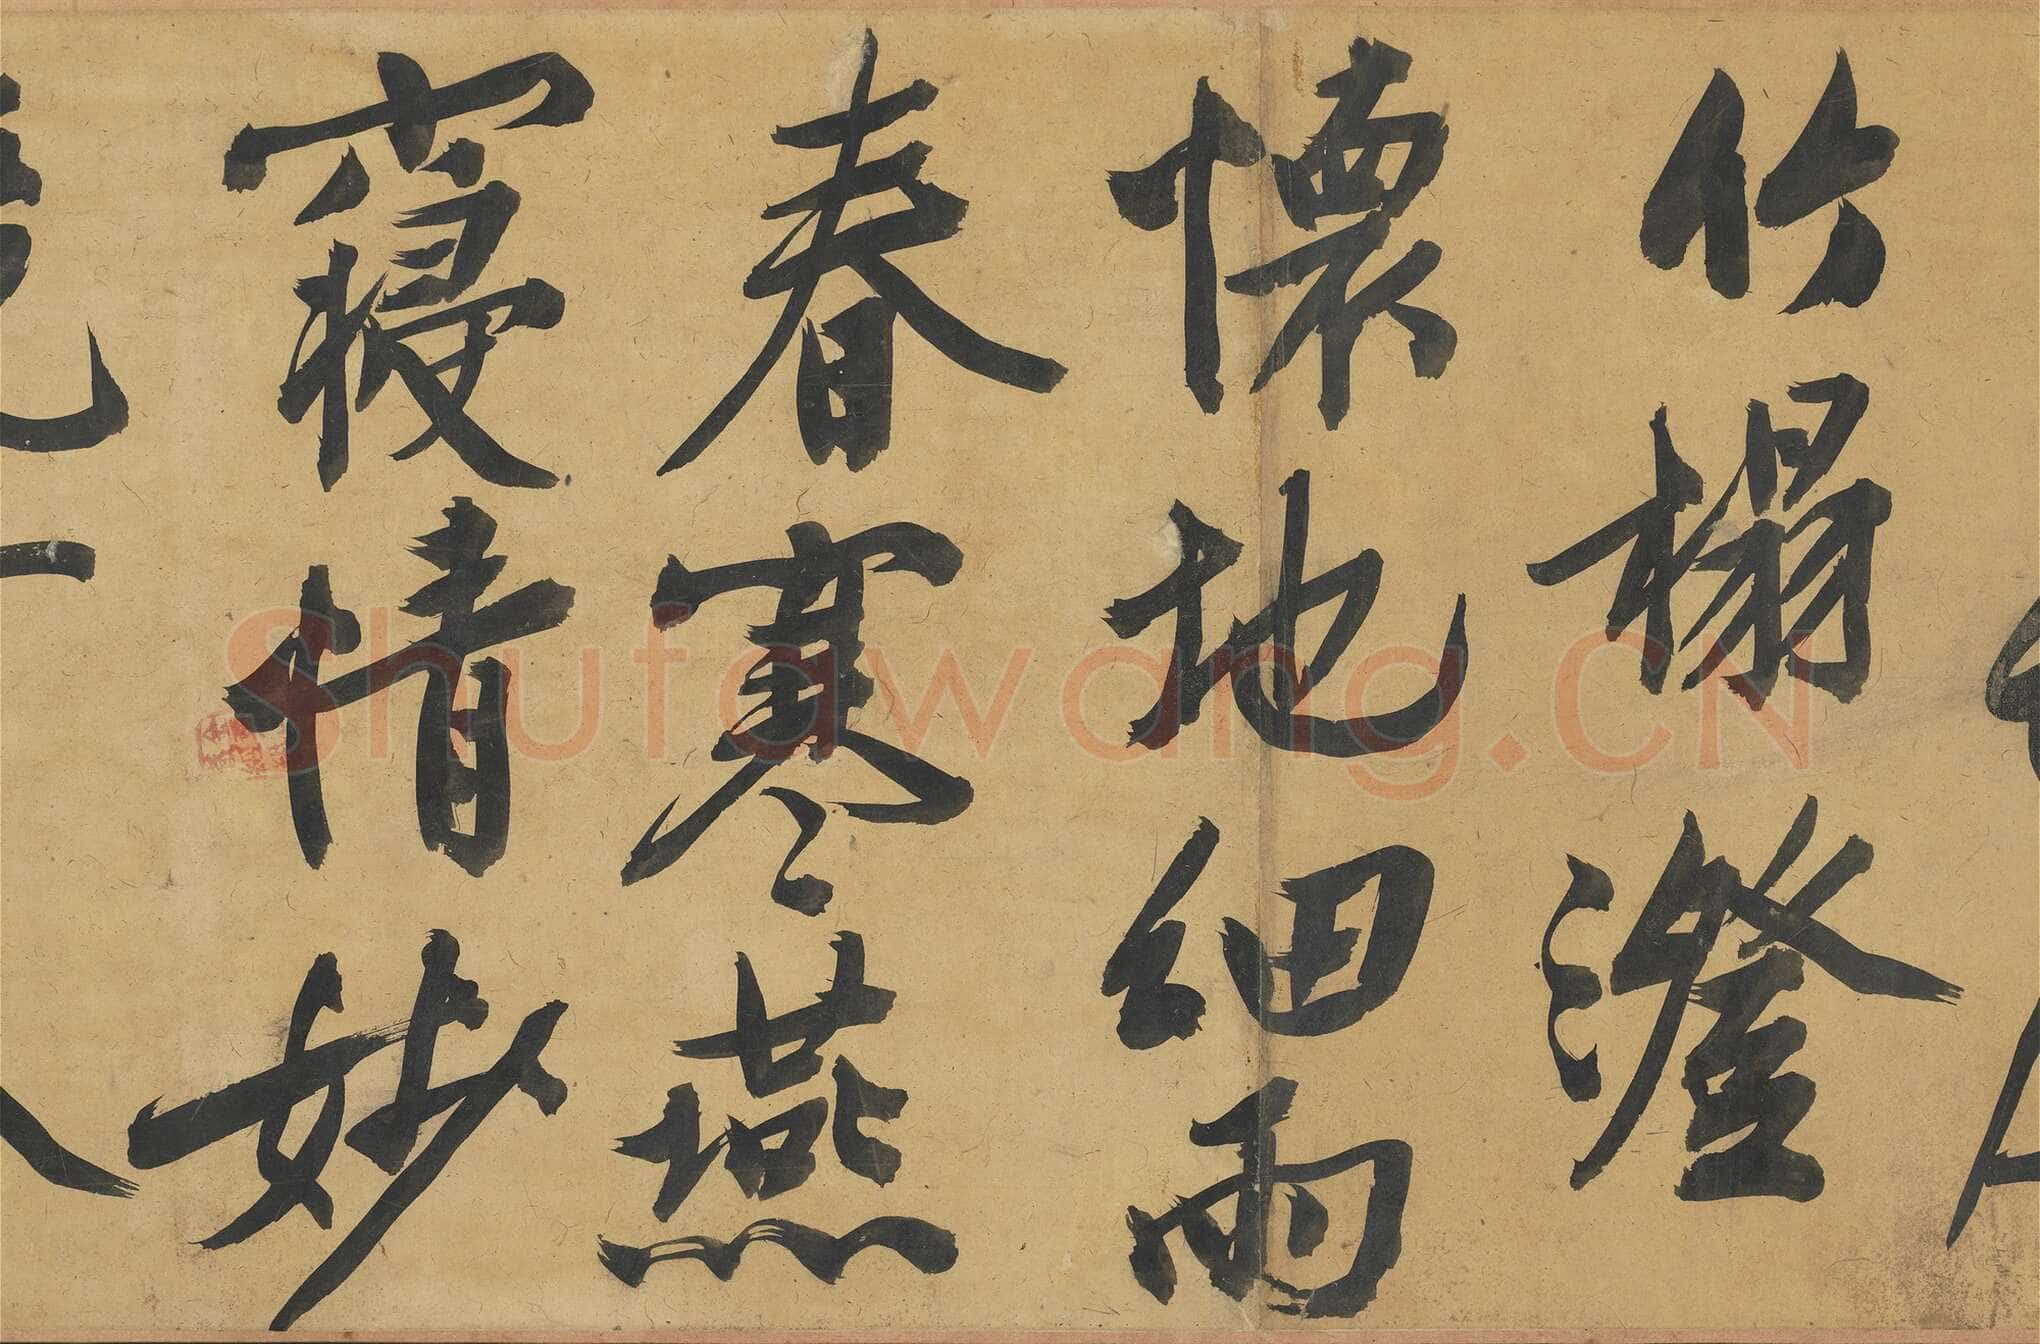 竹榻澄
懷地細雨
春寒燕
寢情妙
Shufawang.CN